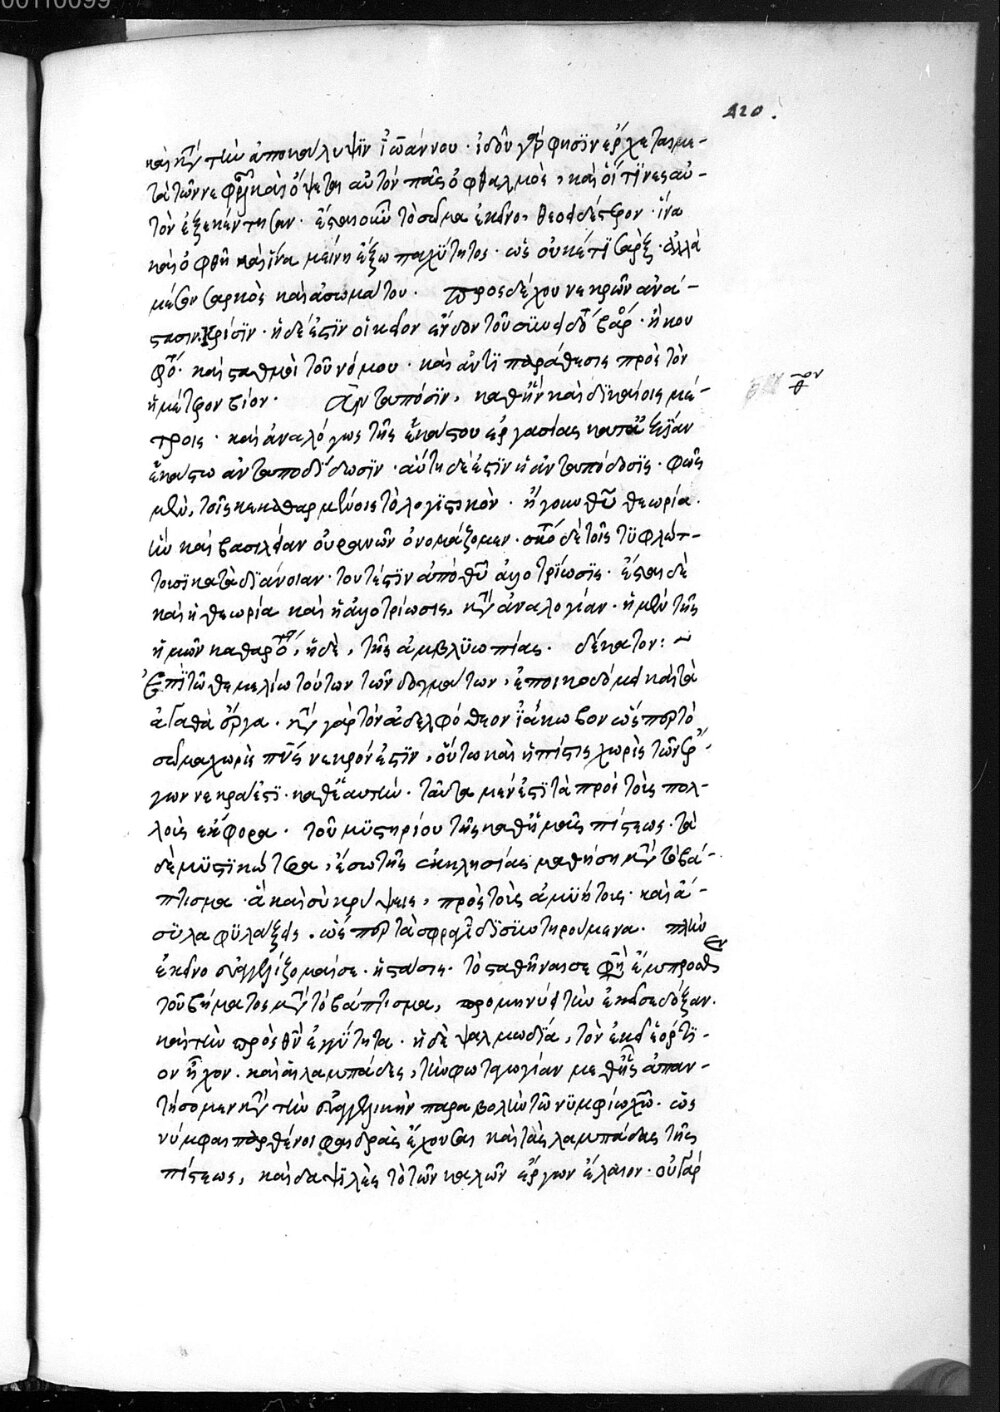 00110099
120.
καὶ κατὰ τὴν ἀποκάλυψϊν ϊωάννου · ἰδοὺ γάρ φησϊν ἔρχεται με-
τὰ τῶν νεφελῶν καὶ ὄψεται αὐτὸν πᾶς ὀφθαλμὸς, καὶ οἵ τϊνες αὐ-
τὸν ἐξεκέντησαν · ἔσται οὖν τὸ σῶμα ἐκεῖνο, θεοειδέστερον · ἵνα
καὶ ὀφθῆ καὶ ἵνα μείνη ἔξω παχύτητος · ὡς οὐκέτι σὰρξ · ἀλλὰ
μέσον σαρκὸς καὶ ἀσωμάτου · προσδέχου νεκρῶν ἀνά-
στασιν. Κρίσϊν · ἡ δέ ἐστϊν οἰκεῖον ἔνδον τοῦ συνειδότος βάρος · ἢ κου
φότης · καὶ σταθμοὶ τοῦ νόμου · καὶ ἀντϊπαράθεσις πρὸς τὸν
ἡμέτερον βίον · θον
Ἀνταπόδοσϊν, καθ' ἣν καὶ δϊκαίοις μέ-
τροις · καὶ ἀναλόγως τῆς ἑκάστου ἐργασίας κατὰ ἀξίαν
ἑκάστω ἀνταποδίδωσϊν · αὕτη δέ ἐστϊν ἡ ἀνταπόδοσϊς · φῶς
μὲν, τοῖς κεκαθαρμένοις τὸ λογϊστικὸν · ἤγουν θεοῦ θεωρία.
ἣν καὶ βασιλείαν οὐρανῶν ὀνομάζομεν · σκότος δὲ τοῖς τϋφλώτ-
τουσϊ κατὰ δϊάνοιαν · τουτέστϊν ἀπὸ θεοῦ ἀλλοτρίωσϊς · ἔσται δὲ
καὶ ἡ θεωρία καὶ ἡ ἀλλοτρίωσις, κατὰ ἀναλογίαν · ἡ μὲν τῆς
ἡμῶν καθαρότητος, ἡ δὲ, τῆς ἀμβλϋωπίας · δέκατον: ~
Ἐπὶ τῶ θεμελίω τούτων τῶν δογμάτων, ἐποικοδόμει καὶ τὰ
ἀγαθὰ ἔργα · κατὰ γὰρ τὸν ἀδελφόθεον ϊάκωβον ὥσπερ τὸ
σῶμα χωρὶς πνεύματος νεκρόν ἐστϊν, οὕτω καὶ ἡ πίστις χωρὶς τῶν ἔρ-
γων νεκρά ἐστϊ · καθ' ἑαυτήν · ταῦτα μέν ἐστϊ τὰ πρὸς τοὺς πολ-
λοὺς ἔκφορα · τοῦ μϋστηρίου τῆς καθ' ἡμᾶς πίστεως · τὰ
δὲ μϋστϊκώτερα, ἔσω τῆς ἐκκλησίας μαθήση κατὰ τὸ βά-
πτισμα · ἃ καὶ σὺ κρύψεις, πρὸς τοὺς ἀμϋήτους · καὶ ἄ-
σϋλα φϋλάξεις, ὥσπερ τὰ σφραγῖδϊ σϋντηρούμενα. πλὴν
ἐκεῖνο εὐαγγελίζομαί σε · ἡ στάσις · τὸ σταθῆναί σε φησὶν ἔμπροσθεν
τοῦ βήματος κατὰ τὸ βάπτισμα, προμηνύει τὴν ἐκεῖσε δόξαν.
καὶ τὴν πρὸς θεὸν ἐγγύτητα · ἡ δὲ ψαλμωδϊα, τὸν ἐκεῖ ἑόρτϊ-
ον ἦχον. καὶ αἱ λαμπάδες, τὴν φωταγωγίαν μεθ' ἧς ἀπαν-
τήσομεν κατὰ τὴν εὐαγγελικὴν παραβολὴν τῶ νϋμφίω χριστῶ · ὡς
νύμφαι παρθένοι φαιδρὰς ἔχουσαι καὶ τὰς λαμπάδας τῆς
πίστεως, καὶ δαψϊλὲς τὸ τῶν καλῶν ἔργων ἔλαιον · οὐ γὰρ